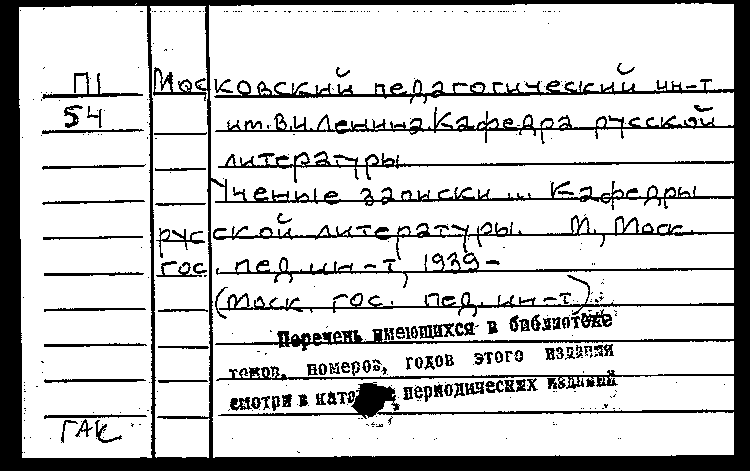 П1 Московский педагогический ин-т
54 им. В.И. Ленина. Кафедра русской
литературы
Ученые записки ... Кафедры
русской литературы. М., Моск.
гос. пед. ин-т, 1939-
(Моск. гос. пед. ин-т)
Перечень имеющихся в библиотеке
томов, номеров, годов этого издания
смотри в периодических изданий
ГАК